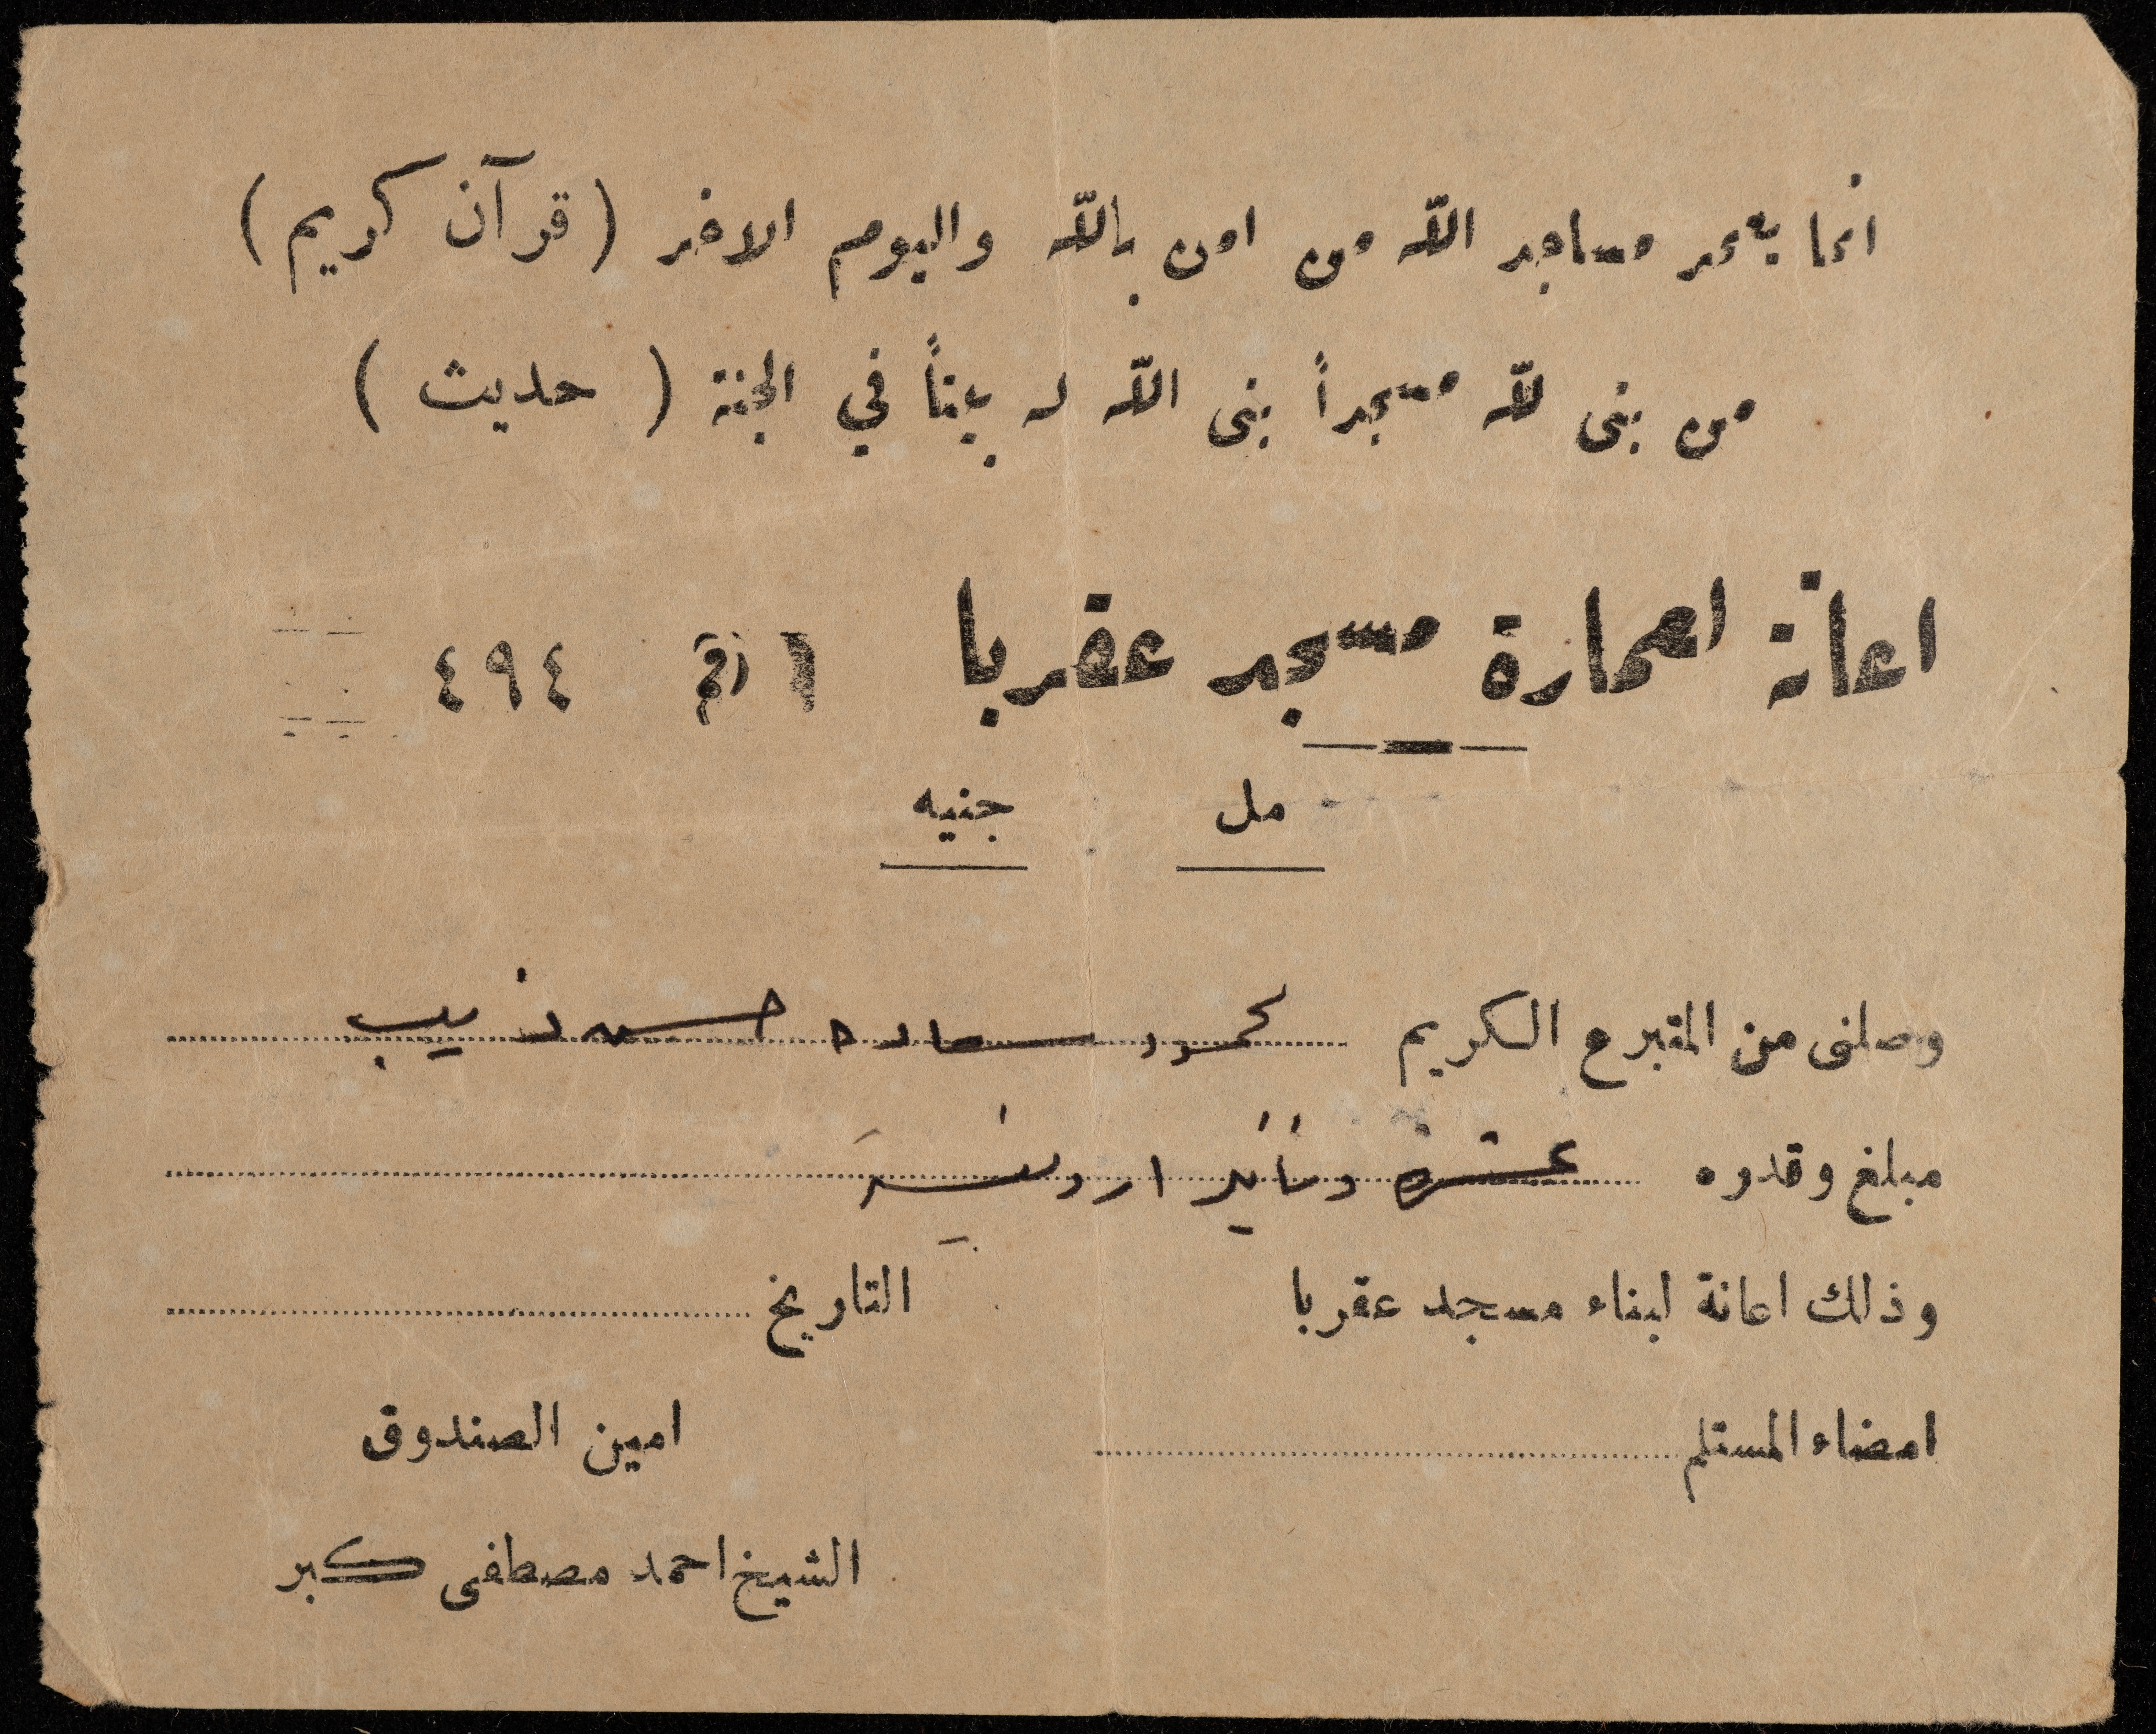 انما يعمر مساجد الله من امن بالله واليوم الاخر (قرآن كريم)
من بنى لله مسجداً بنى الله له بيتاً في الجنة ( حديث )
اعانة لعمارة مسجد عقربا رقم ٤٩٤
مل جنيه
وصلنى من المتبرع الكريم محمود حسن ذيب
مبلغ وقدوه عشرة دنانير اردنية
وذلك اعانة لبناء مسجد عقربا التاريخ
امضاء المستلم امين الصندوق
الشيخ احمد مصطفى كبر